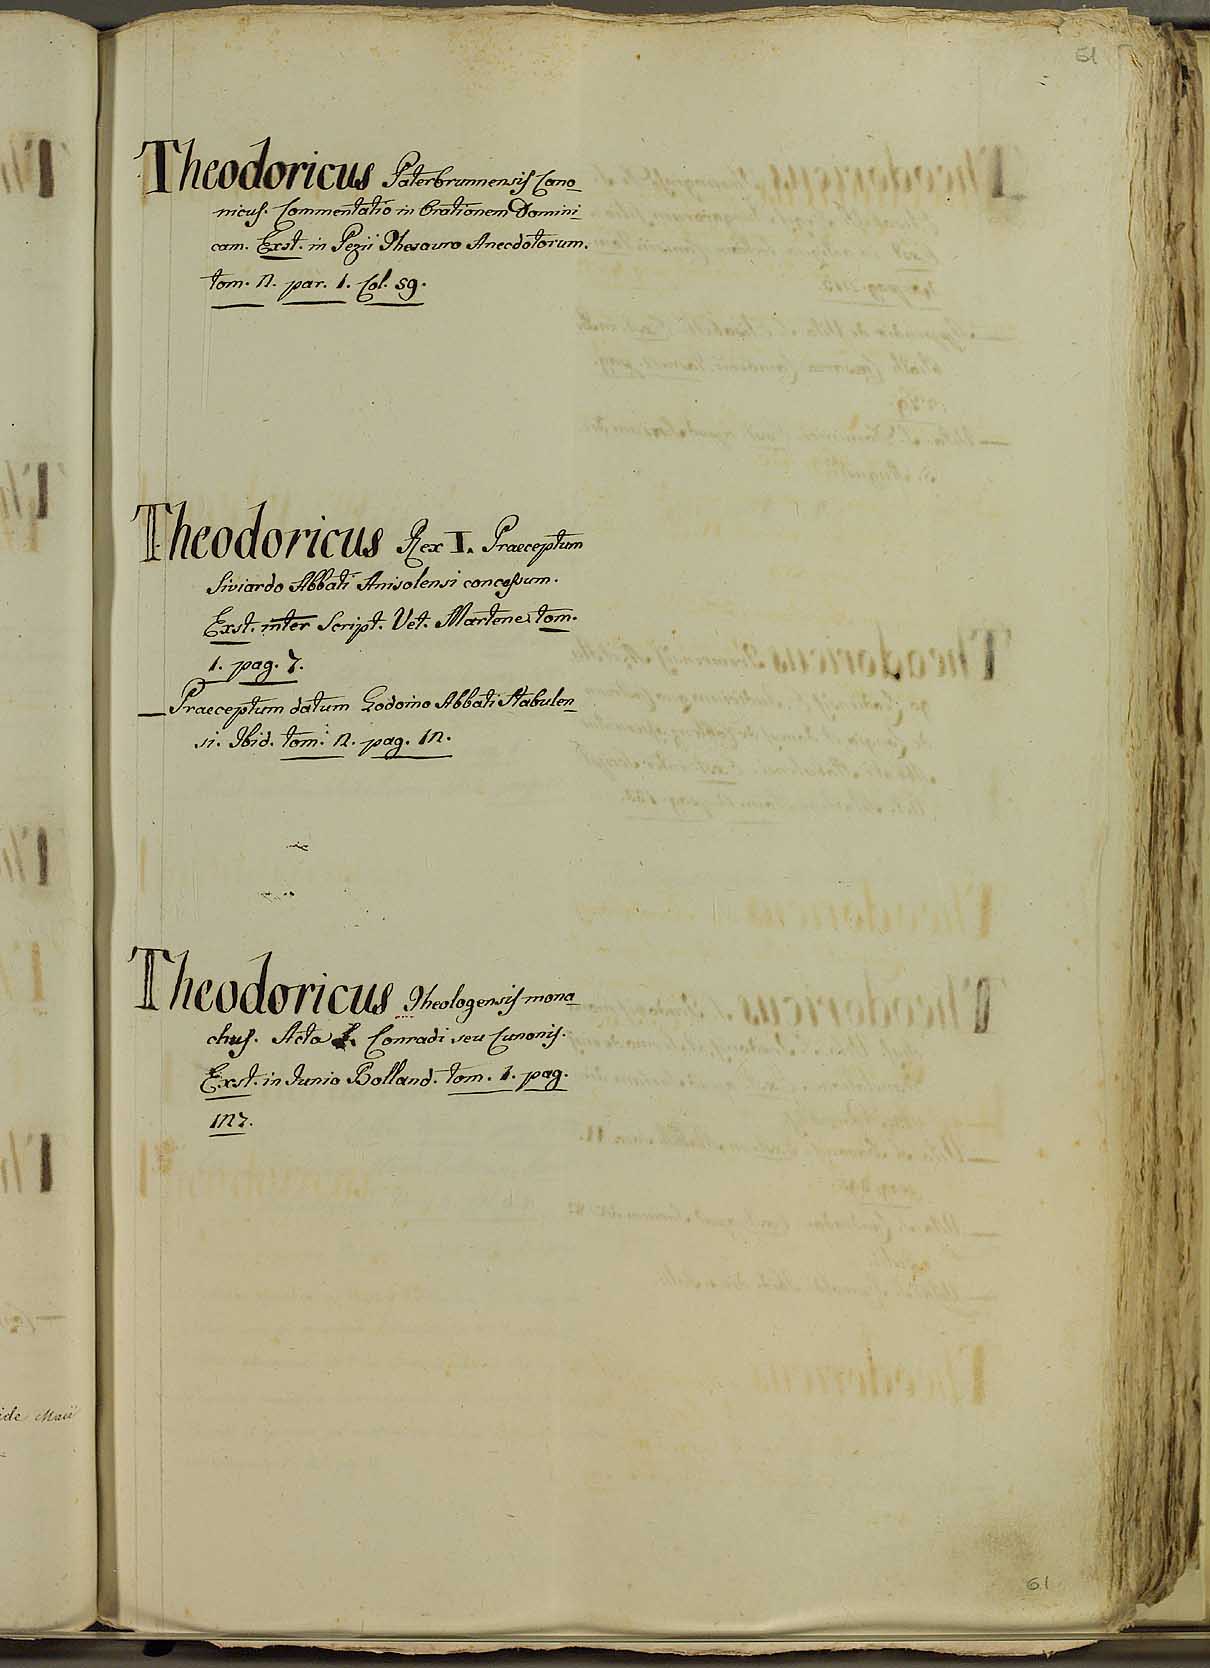 61
Theodoricus Paterbrunnensis Cano
nicus. Commentatio in Orationem Domini
cam. Exst. in Pezii Thesauro Anecdotorum.
tom. 2. par. 1. Col. 59.
Theodoricus Rex I. Praeceptum
Siviardo Abbati Anisolensi concessum.
Exst. inter Script. Vet. Martene tom.
1. pag. 7.
— Praeceptum datum Godoino Abbati Stabulen
si. Ibid. tom. 2. pag. 12.
Theodoricus Theologensis mona
chus. Acta S. Conradi seu Cunonis.
Exst. in Junio Bolland. tom. 1. pag.
127.
ide Maii
61